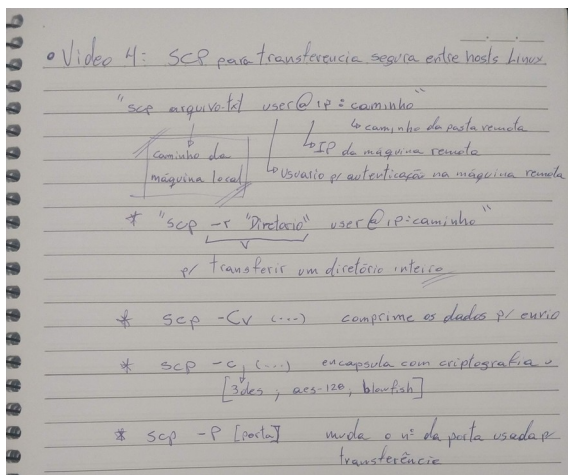 • Video 4: SCP para transferencia segura entre hosts Linux.
"scp arquivo.txt user@ip:caminho"
↳ caminho da pasta remota
↳ IP da máquina remota
↳ Usuario p/ autenticação na máquina remota
caminho da
máquina local
* "scp -r "Diretorio" user@ip:caminho"
p/ transferir um diretório inteiro
* scp -Cv (...) comprime os dados p/ envio
* scp -c (...) encapsula com criptografia
[3des, aes-128, blowfish]
* scp -P [porta] muda o nº da porta usada p/
transferência